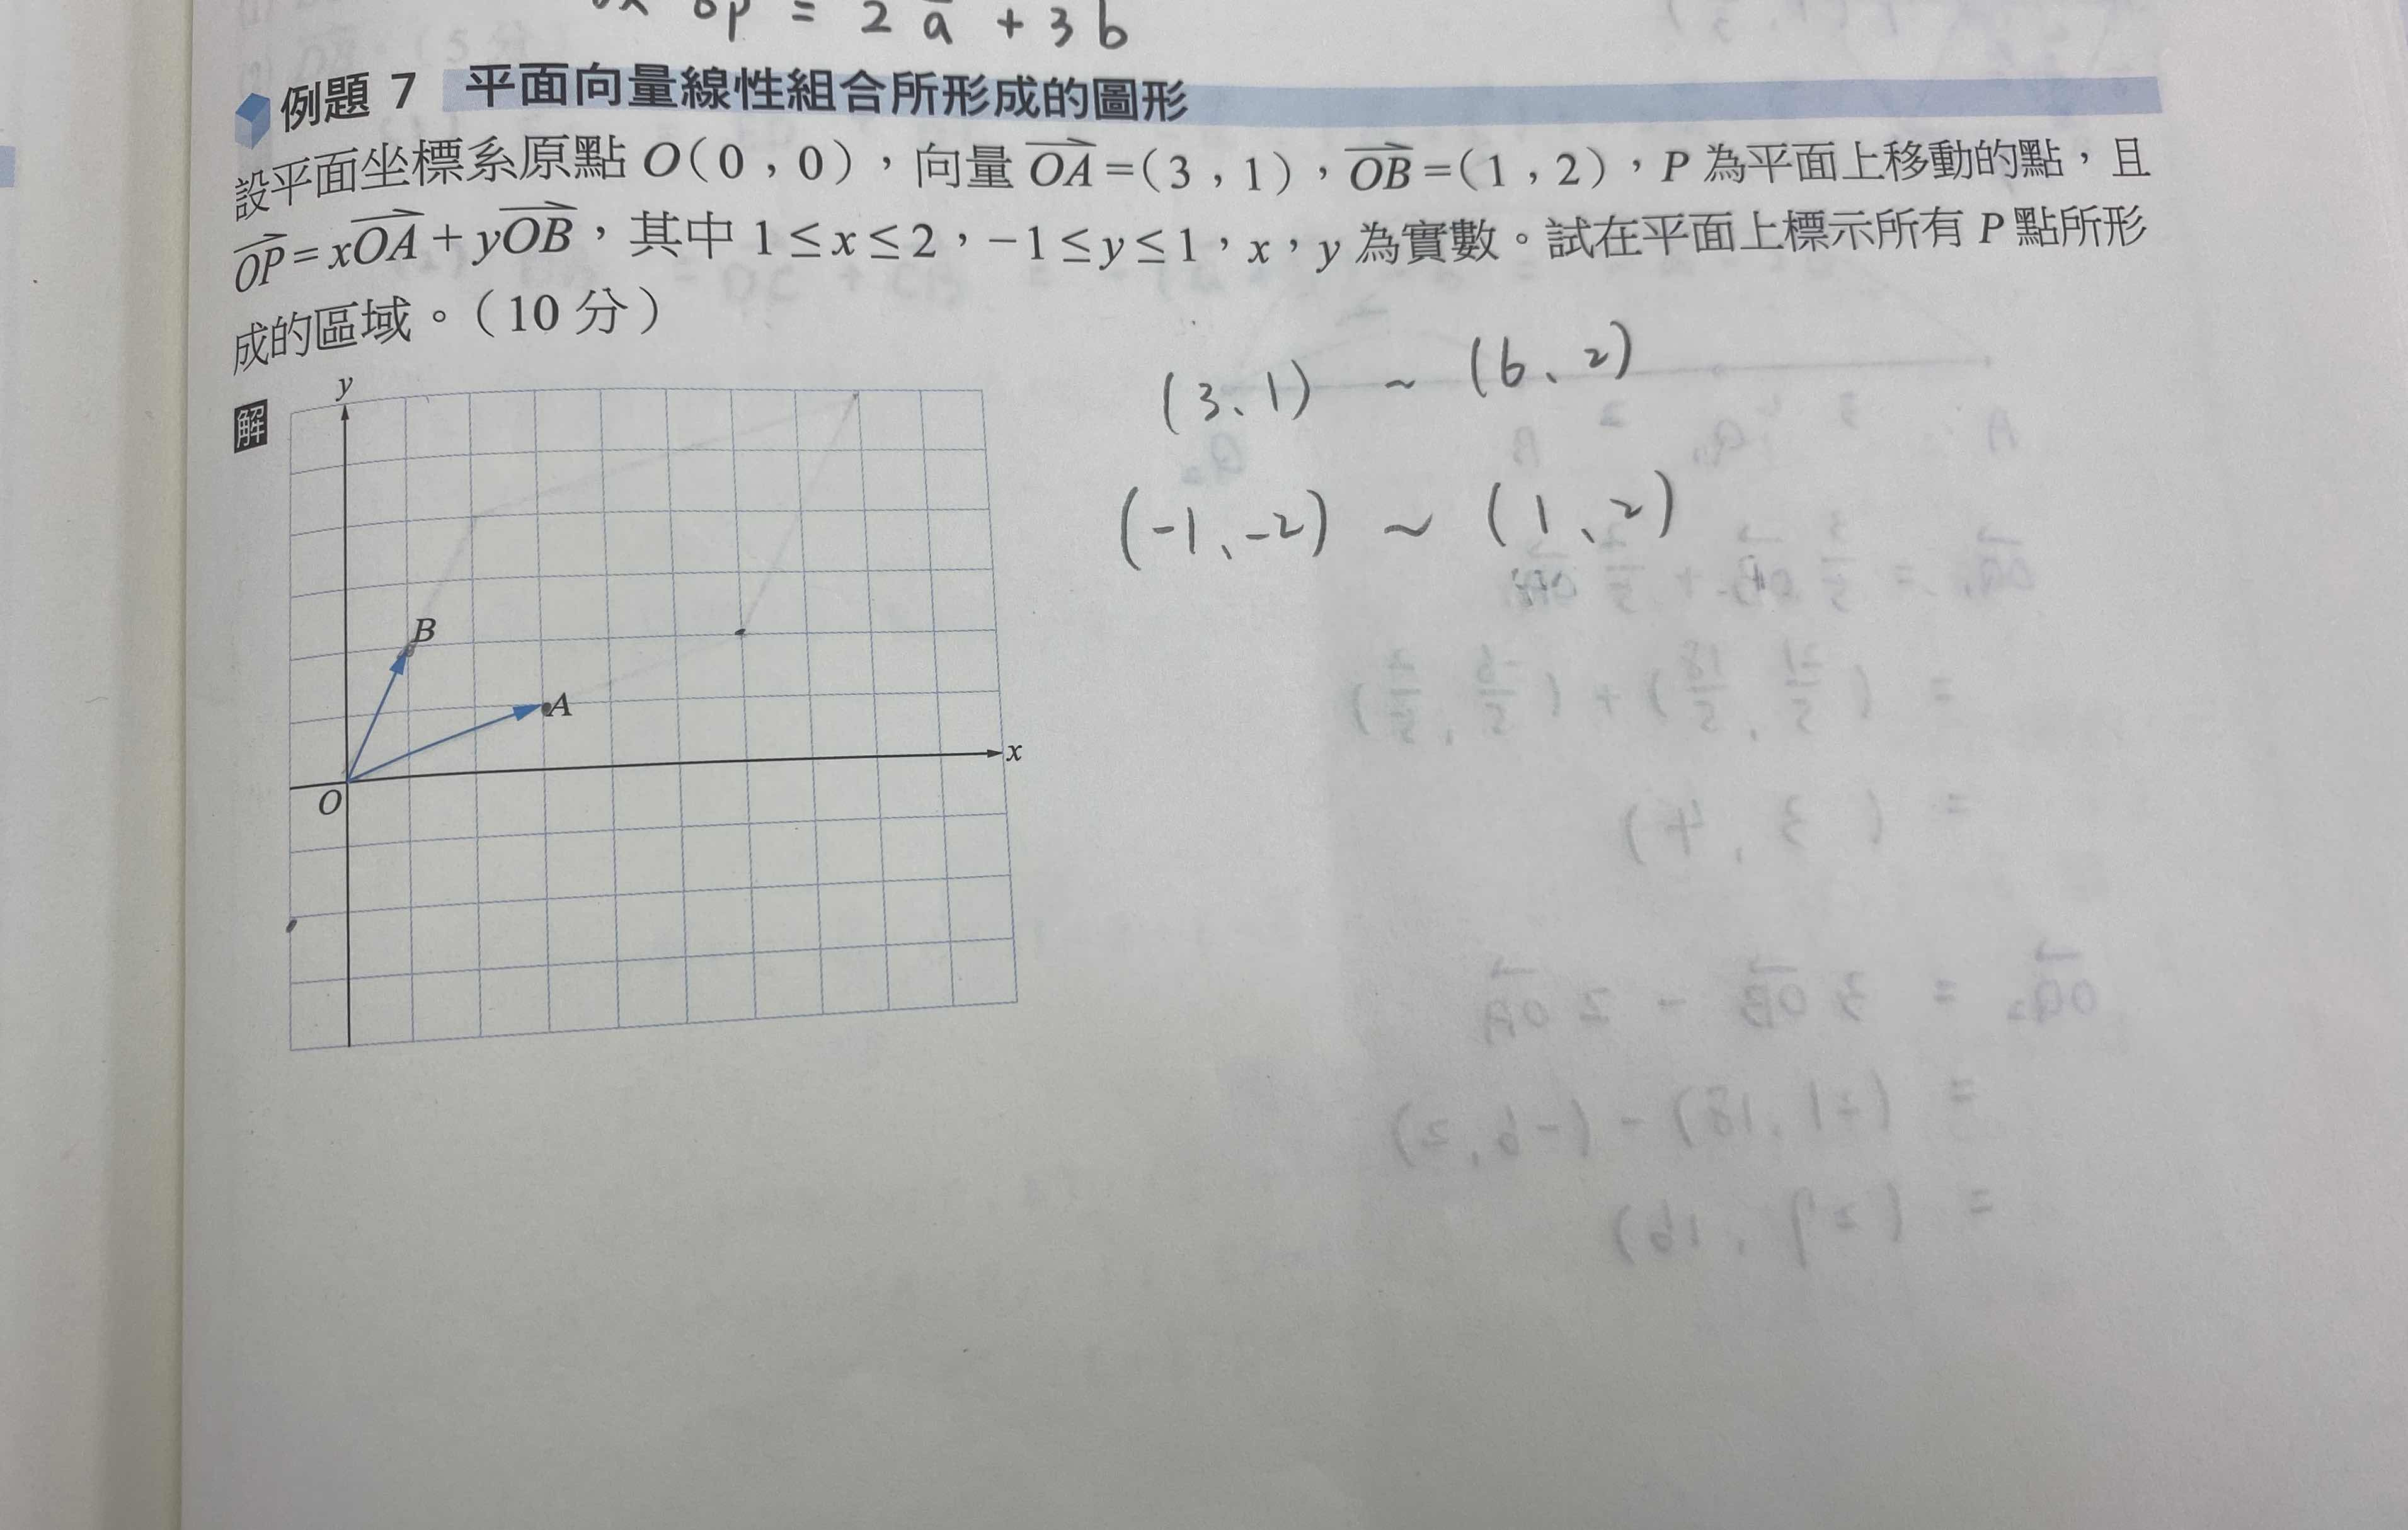 op = 2a + 3b
例題 7 平面向量線性組合所形成的圖形
設平面坐標系原點 O(0,0),向量 OA=(3,1),OB=(1,2),P 為平面上移動的點,且
OP=xOA+yOB,其中 1≤x≤2,−1≤y≤1,x,y 為實數。試在平面上標示所有 P 點所形
成的區域。(10 分)
(3、1) ~ (6、2)
解
y
(-1、-2) ~ (1、2)
B
A
x
O